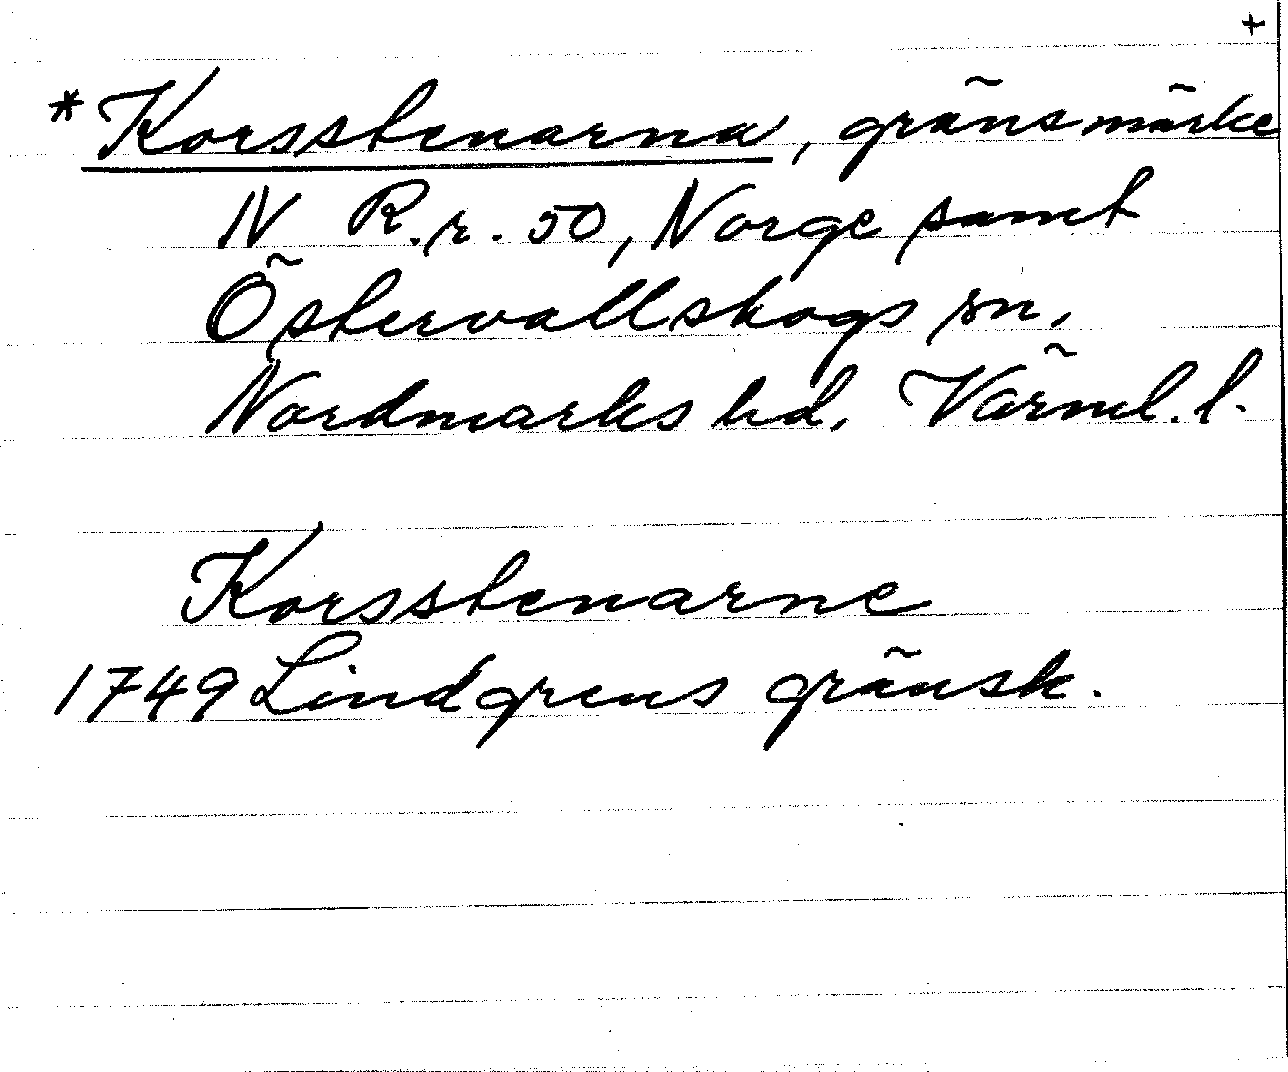 +
* Korsstenarna, gränsmärke
N R.r. 50, Norge samt
Östervallskogs sn,
Nordmarks hd, Värml. l.
Korsstenarne
1749 Lindgrens gränsk.